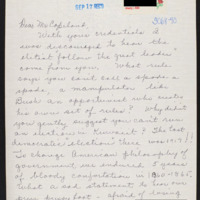 SEP 12 1995
Dear Mr Copeland,
With your credentials I
was discouraged to hear the
elitist follow the great leader
come from you. What rule
says you can't call a spade a
spade, a manipulator like
Bush an opportunist who makes
his own set of rules? Why didn't
you gently suggest you can't run
an election in Kuwait? The last
democratic election there was
To change American philosophy of
government we endured 4 years
of bloody confrontation in 1860-1865.
What a sad statement to hear our
afraid of losing